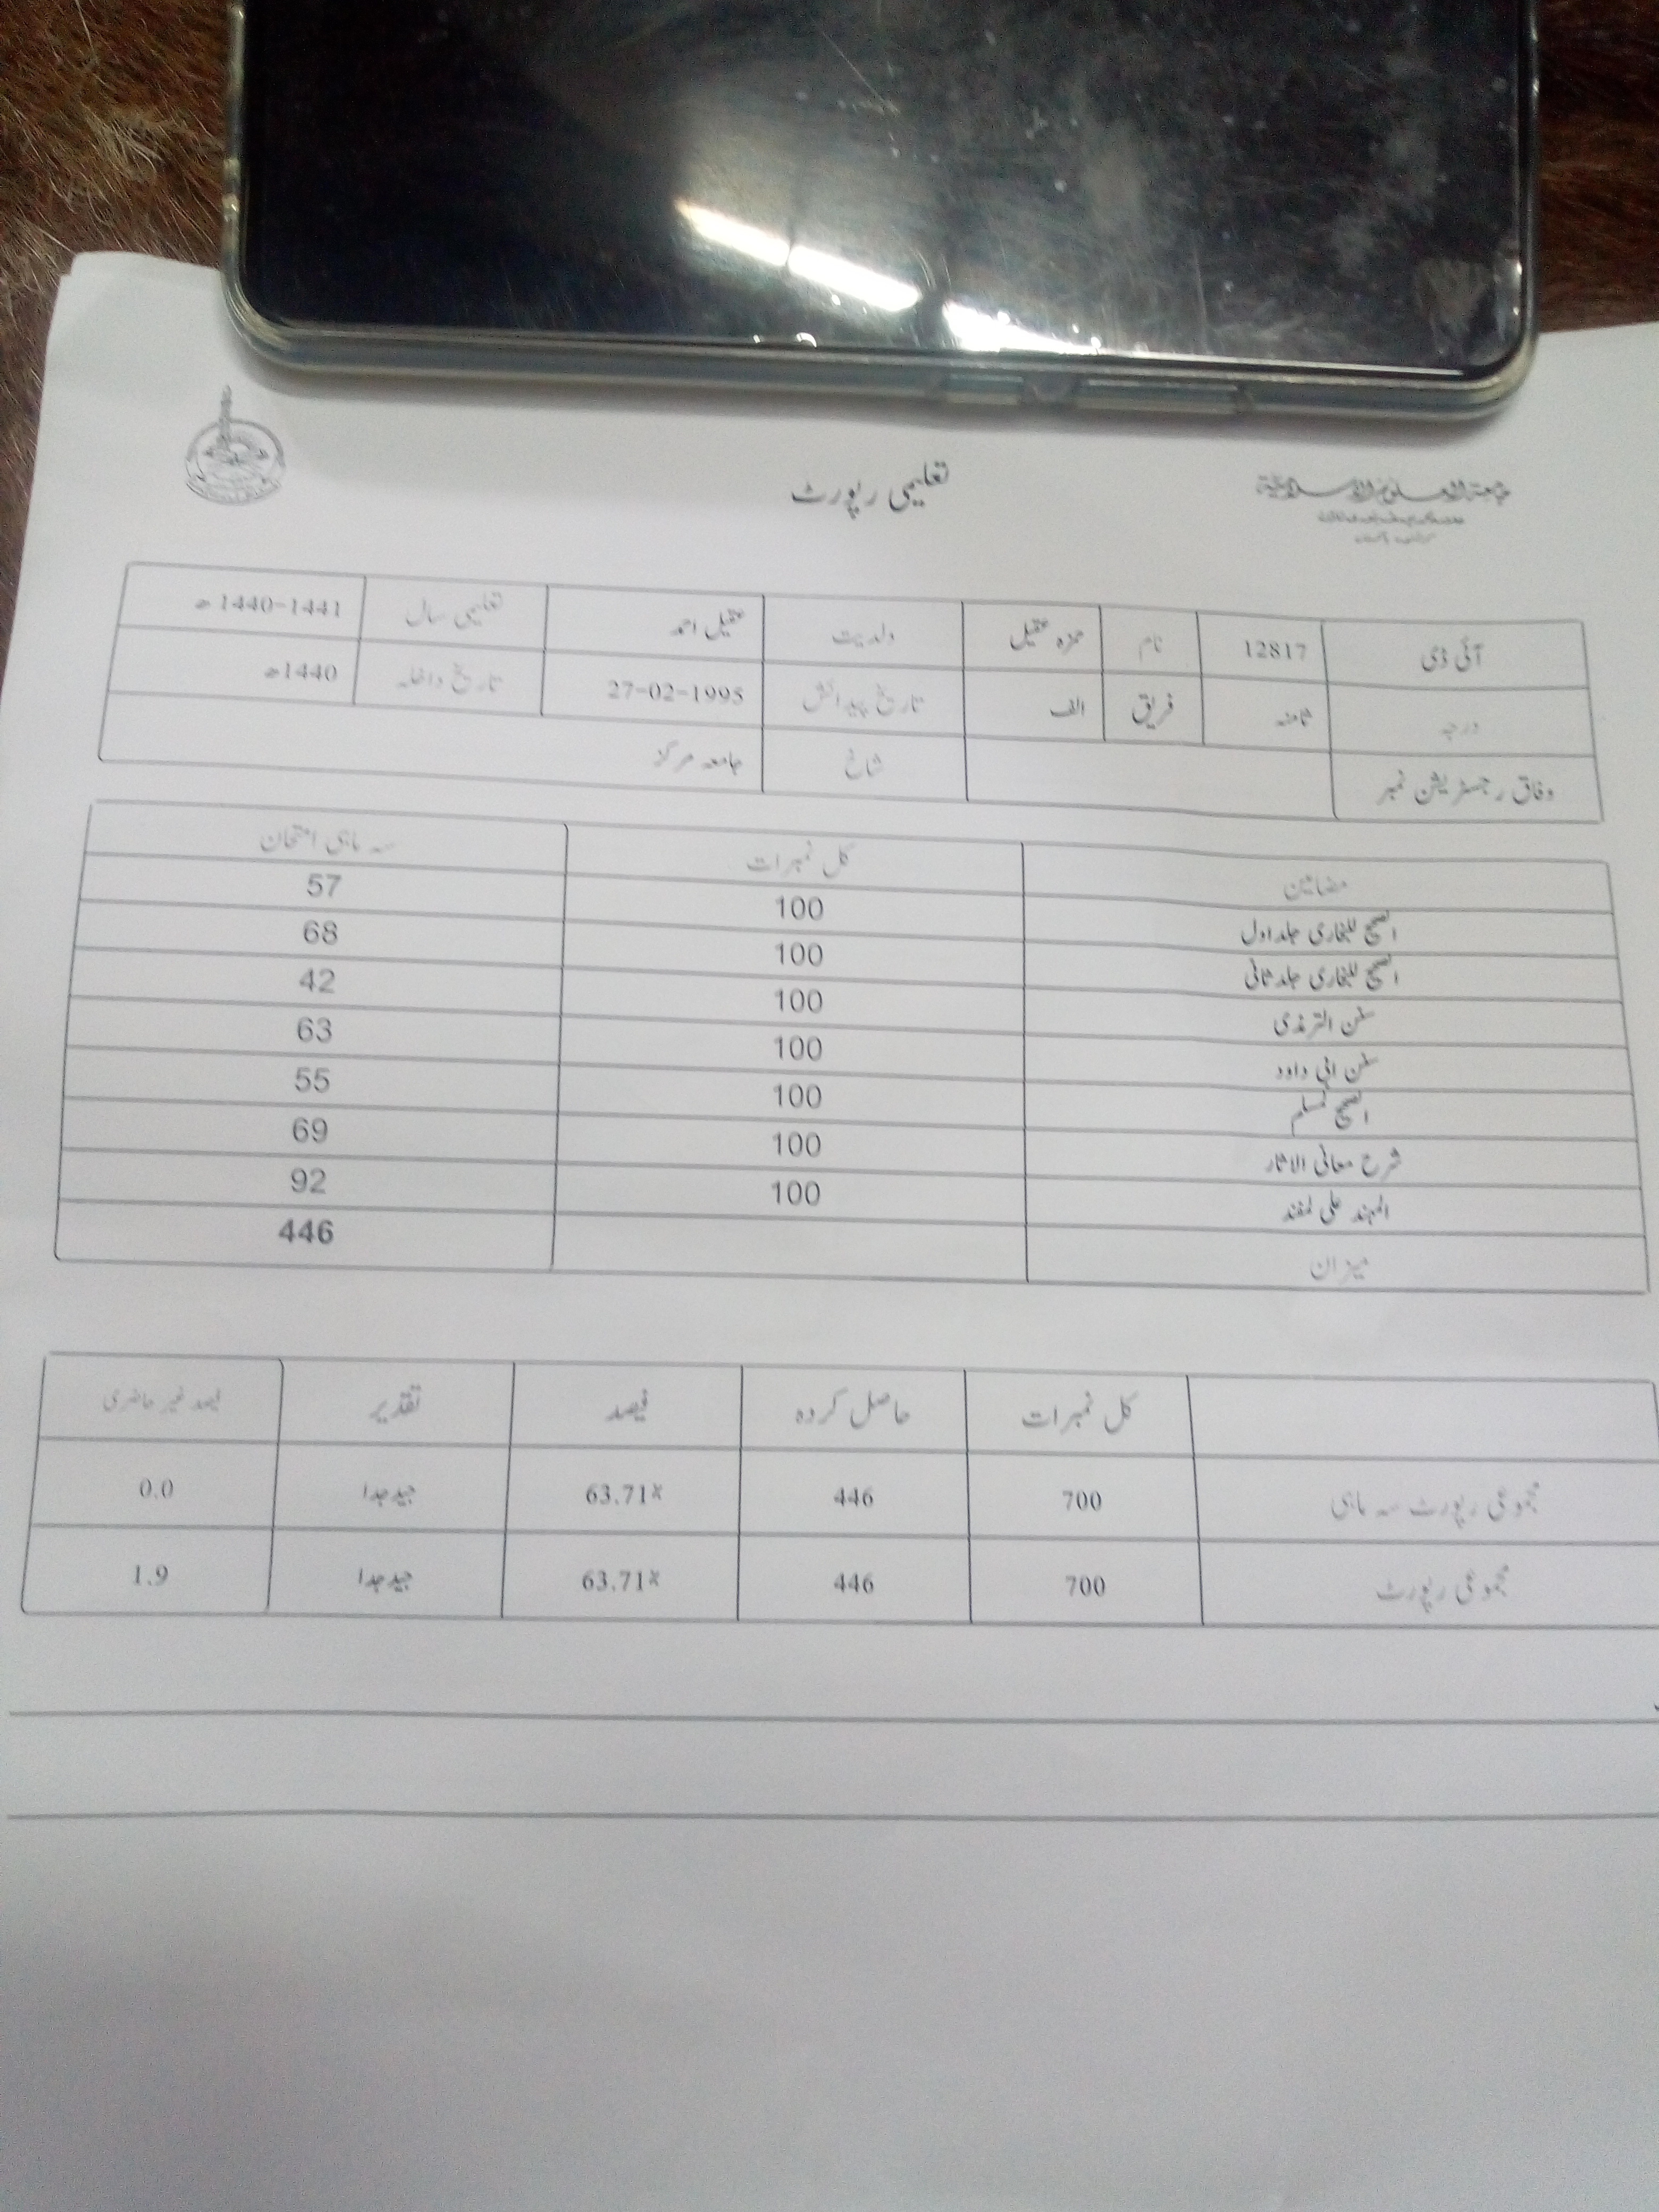 جامعة العلوم الاسلامية
تعلیمی رپورٹ
آئی ڈی 12817 نام حمزہ عقیل ولدیت عقیل احمد تعلیمی سال 1440-1441ھ
درجہ ثامنہ فریق الف تاریخ پیدائش 27-02-1995 تاریخ داخلہ 1440ھ
وفاق رجسٹریشن نمبر شاخ جامعہ مرکز
مضامین کل نمبرات سہ ماہی امتحان
الصحیح للبخاری جلد اول 100 57
الصحیح للبخاری جلد ثانی 100 68
سنن الترمذی 100 42
سنن ابی داود 100 63
الصحیح لمسلم 100 55
شرح معانی الاثار 100 69
المہند علی لمفند 100 92
میزان 446
کل نمبرات حاصل کردہ فیصد تقدیر فیصد غیر حاضری
مجموعی رپورٹ سہ ماہی 700 446 63.71% جید جدا 0.0
مجموعی رپورٹ 700 446 63.71% جید جدا 1.9